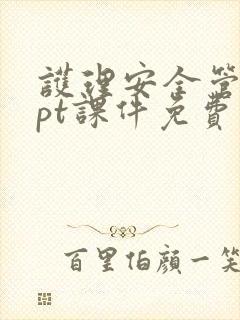 護理安全管
pt課件免費
百里伯顏一笑